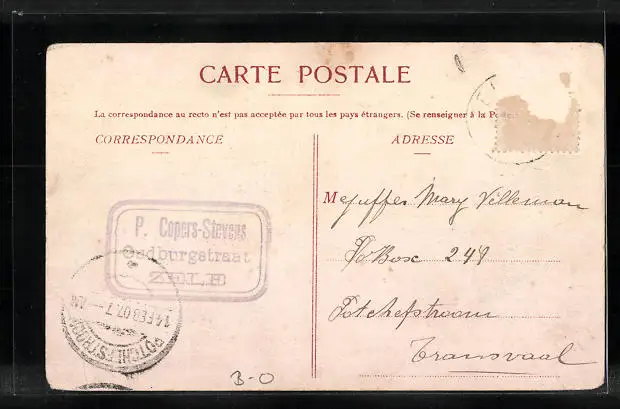 CARTE POSTALE
La correspondance au recto n'est pas acceptée par tous les pays étrangers. (Se renseigner à la Poste.
CORRESPONDANCE
ADRESSE
P. Copers-Stevens
Oudburgstraat
ZELE
POTCHEFSTROOM
14 FEB 07.7 AM
Mejuffer Mary Villeman
PoBox 248
Potchefstroom
Transvaal
B-O